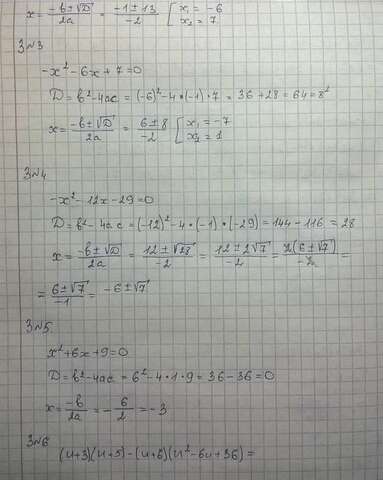 x = (-b ± √D)/2a = (-1 ± 13)/-2 [ x₁ = -6
x₂ = 7
3№3
-x² - 6x + 7 = 0
D = b² - 4ac = (-6)² - 4 • (-1) • 7 = 36 + 28 = 64 = 8²
x = (-b ± √D)/2a = (6 ± 8)/-2 [ x₁ = -7
x₂ = 1
3№4
-x² - 12x - 29 = 0
D = b² - 4ac = (-12)² - 4 • (-1) • (-29) = 144 - 116 = 28
x = (-b ± √D)/2a = (12 ± √28)/-2 = (12 ± 2√7)/-2 = 2(6 ± √7)/-2 =
= (6 ± √7)/-1 = -6 ± √7
3№5
x² + 6x + 9 = 0
D = b² - 4ac = 6² - 4 • 1 • 9 = 36 - 36 = 0
x = -b/2a = -6/2 = -3
3№6
(u+3)(u+5) - (u+6)(u² - 6u + 36) =